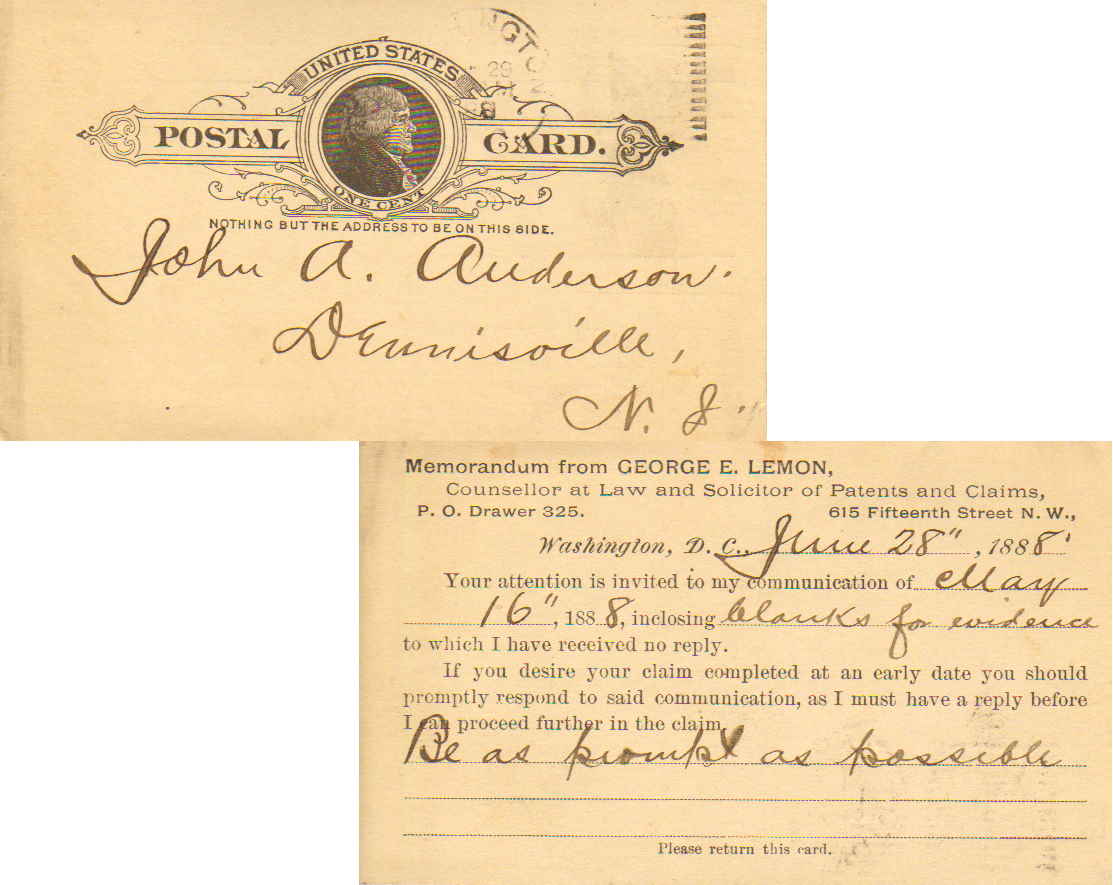 UNITED STATES
POSTAL CARD.
ONE CENT
NOTHING BUT THE ADDRESS TO BE ON THIS SIDE.
John A. Anderson.
Dennisville,
N. J.
Memorandum from GEORGE E. LEMON,
Counsellor at Law and Solicitor of Patents and Claims,
P. O. Drawer 325. 615 Fifteenth Street N. W.,
Washington, D. C., June 28", 1888.
Your attention is invited to my communication of May
16", 1888, inclosing blanks for evidence
to which I have received no reply.
If you desire your claim completed at an early date you should
promptly respond to said communication, as I must have a reply before
I can proceed further in the claim.
Be as prompt as possible
Please return this card.